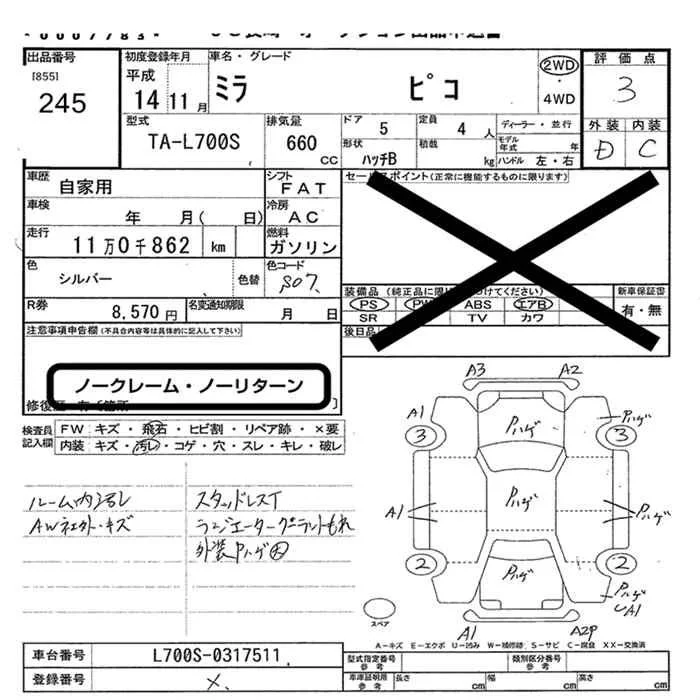 出品番号
[855]
245
初度登録年月
平成
14 11月
車名・グレード
ミラ ピコ
2WD
・
4WD
評価点
3
外装 内装
D C
型式
TA-L700S
排気量
660
CC
ドア 5
定員 4 人
形状 ハッチB
積載 kg
ディーラー・並行
モデル年式 年
ハンドル 左・右
車歴
自家用
シフト
FAT
車検
年 月( 日)
冷房
AC
走行
11万0千862 km
燃料
ガソリン
色
シルバー
色替
色コード
S07
R券
8,570円
名変通知期限
月 日
セールスポイント(正常に機能するものに限ります)
装備品
PS PW ABS エアB
SR TV カワ
新車保証書
有・無
後日品
注意事項申告欄(不具合内容等は具体的に記入して下さい)
ノークレーム・ノーリターン
修復歴
検査員
記入欄
FW キズ・飛石・ヒビ割・リペア跡・×要
内装 キズ・汚レ・コゲ・穴・スレ・キレ・破レ
ルーム内汚レ
AWキズ
スタッドレスT
ラジエータークーラントもれ
外装Pハゲ大
A3 A2
A1 Pハゲ Pハゲ
3 3
A1 Pハゲ Pハゲ
2 2
Pハゲ Pハゲ
UA1
A1 A2P
スペア
A=キズ E=エクボ U=凹み W=補修跡 S=サビ C=腐食 XX=交換済
車台番号
L700S-0317511
登録番号
×
型式指定番号
参考
類別区分番号
参考
車庫証明用
参考
長さ cm
幅 cm
高さ cm